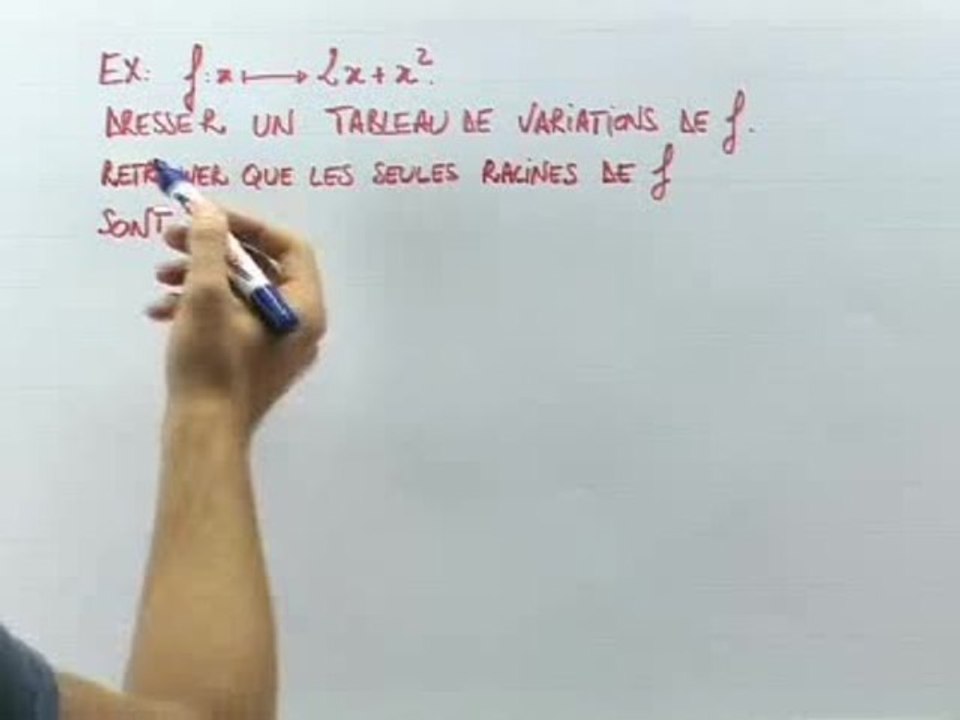 EX: f: x ⟼ 2x + x².
DRESSER UN TABLEAU DE VARIATIONS DE f.
QUE LES SEULES RACINES DE f
SONT